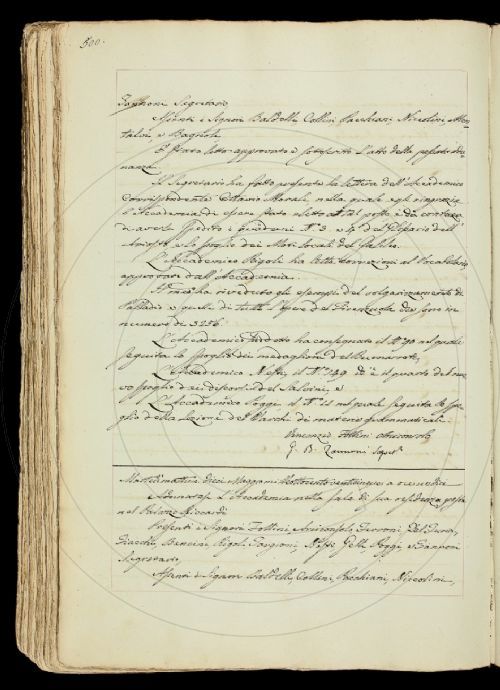 500.
Zannoni Segretario
Assenti i Signori Baldelli, Collini, Pacchiani, Niccolini, Mon-
talvi, e Bagnoli
È stato letto approvato e sottoscritto l'atto della passata Adu-
nanza.
Il Segretario ha fatto presente la lettera dell'Accademico
Corrispondente Ottavio Morali, nella quale egli ringrazia
l'Accademia di essere stato eletto a tal posto, e dà contezza
di avere spedito i quaderni N.° 3. e 4.° del
e lo spoglio dei Moti locali del Galileo.
L'Accademico Rigoli ha letto correzioni al Vocabolario
approvate dall'Accademia.
ha riveduto gli esempi del volgarizzamento di
Palladio e quelli di tutte l'Opere del Firenzuola che sono in
numero di 3256.
L'Accademico ha consegnato il N.° 70 nel quale
seguita lo spoglio dei del Buonarroti,
L'Accademico Nesti, il N.° 149 ed è il quarto del nuo-
vo spoglio dei discorsi del Salvini, e
L'Accademico Poggi il N.° 21 nel quale seguita lo spo-
glio della lezione del Varchi di materie grammaticali.
Vincenzio Follini
G. B. Zannoni Segret.°
Martedì mattina dieci Maggio mille ottocento venticinque a ore undici
Adunatasi l'Accademia nella sala di sua residenza posta
nel Palazzo Riccardi
Presenti i Signori Follini, Ferroni, Del Furia,
Sacchetti, Bencini, Rigoli, Targioni, Nesti, Gelli, Poggi, e Zannoni
Segretario
Assenti i Signori Baldelli, Collini, Pacchiani, Niccolini,